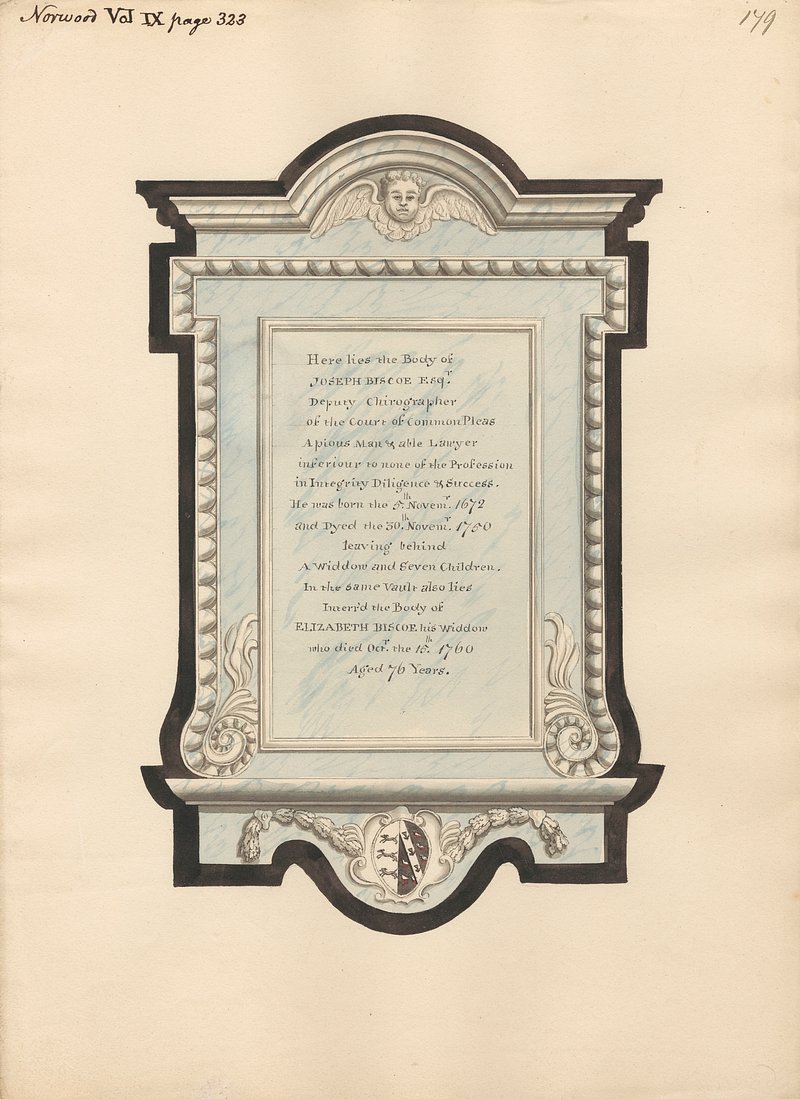 Norwood Vol IX page 323
179
Here lies the Body of
JOSEPH BISCOE Esqr.
Deputy Chirographer
of the Court of Common Pleas
A pious Man & able Lawyer
inferiour to none of the Profession
in Integrity Diligence & Success.
He was born the 5th. Novemr. 1672
and Dyed the 30th. Novemr. 1750
leaving behind
A Widdow and Seven Children.
In the same Vault also lies
Interr'd the Body of
ELIZABETH BISCOE his Widdow
who died Octr. the 15th. 1760
Aged 76 Years.